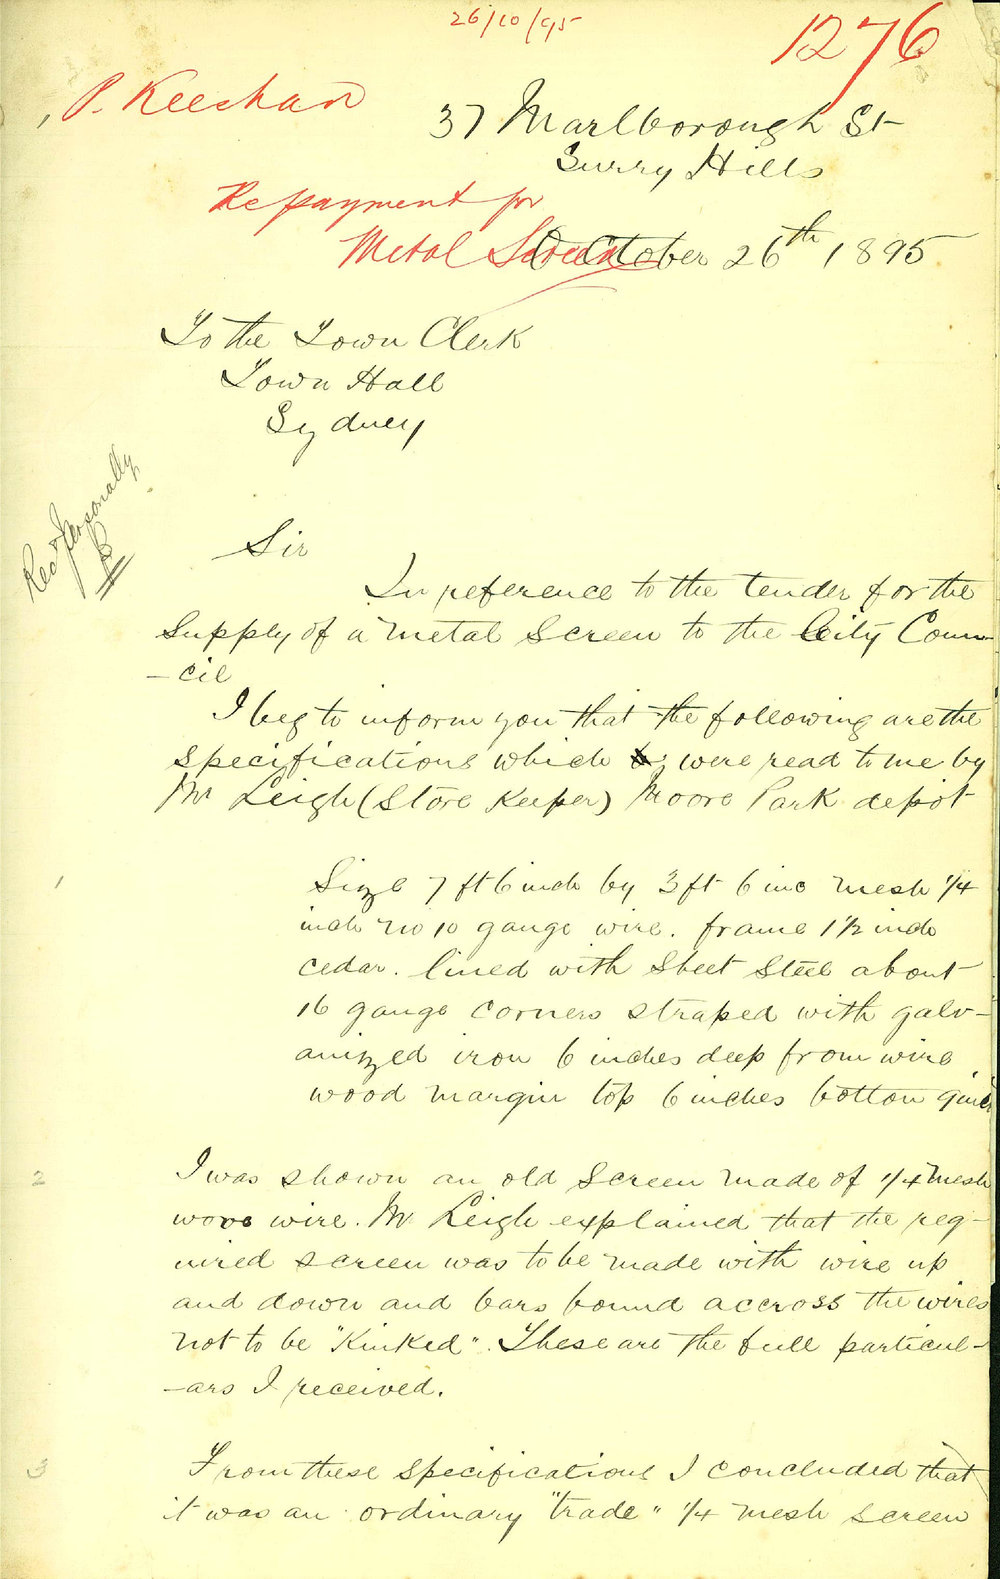 26/10/95
1276
P. Keeshan
37 Marlborough St
Surry Hills
Repayment for
Metal Screen
October 26th 1895
To the Town Clerk
Town Hall
Sydney
Recd Personally
Sir
In reference to the tender for the
Supply of a metal Screen to the City Coun-
-cil
I beg to inform you that the following are the
specifications which were read to me by
Mr Leigh (Store Keeper) Moore Park depot
1
Size 7 ft 6 inch by 3 ft 6 inc mesh 1/4
inch no 10 gauge wire. frame 1 1/2 inch
cedar. lined with Sheet Steel about
16 gauge corners straped with galv-
anized iron 6 inches deep from wire
wood margin top 6 inches bottom 9 inch
2
I was shown an old Screen made of 1/4 mesh
wove wire. Mr Leigh explained that the req-
uired screen was to be made with wire up
and down and bars bound accross the wires
not to be "Kinked". These are the full particul-
-ars I received.
3
From these specifications I concluded that
it was an ordinary "trade" 1/4 mesh screen